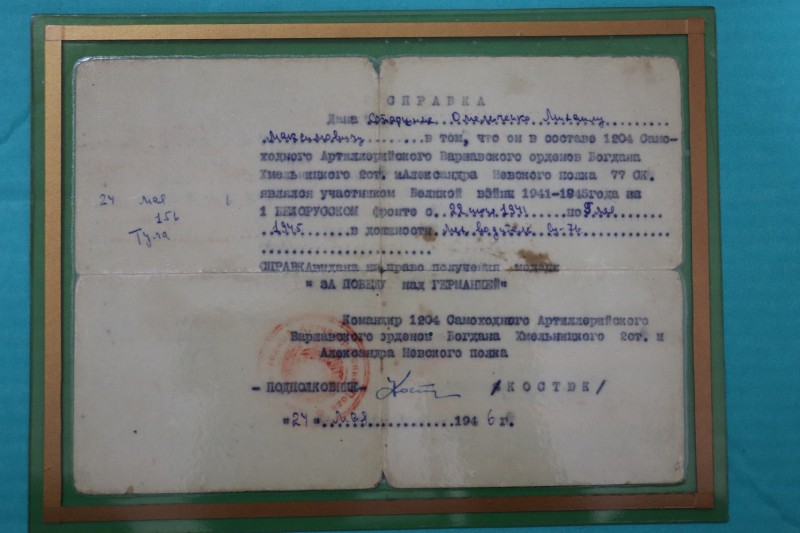 СПРАВКА
Дана Омельченко Михаилу
Максимовичу в том, что он в составе 1204 Само-
ходного Артиллерийского Варшавского орденов Богдана
Хмельницкого 2ст. иАлександра Невского полка 77 СК.
являлся участником Великой войны 1941-1945года на
1 БЕЛОРУССКОМ фронте с 22 июня 1941 по 9 мая
1945 в должности мех водитель Су-76
СПРАВКАвидана на право получения медали
"ЗА ПОБЕДУ над ГЕРМАНИЕЙ"
Командир 1204 Самоходного Артиллерийского
Варшавского орденов Богдана Хмельницкого 2ст. и
Александра Невского полка
- ПОДПОЛКОВНИК- /КОСТЮК/
"24" Мая 1946г.
24 мая
156
Тула